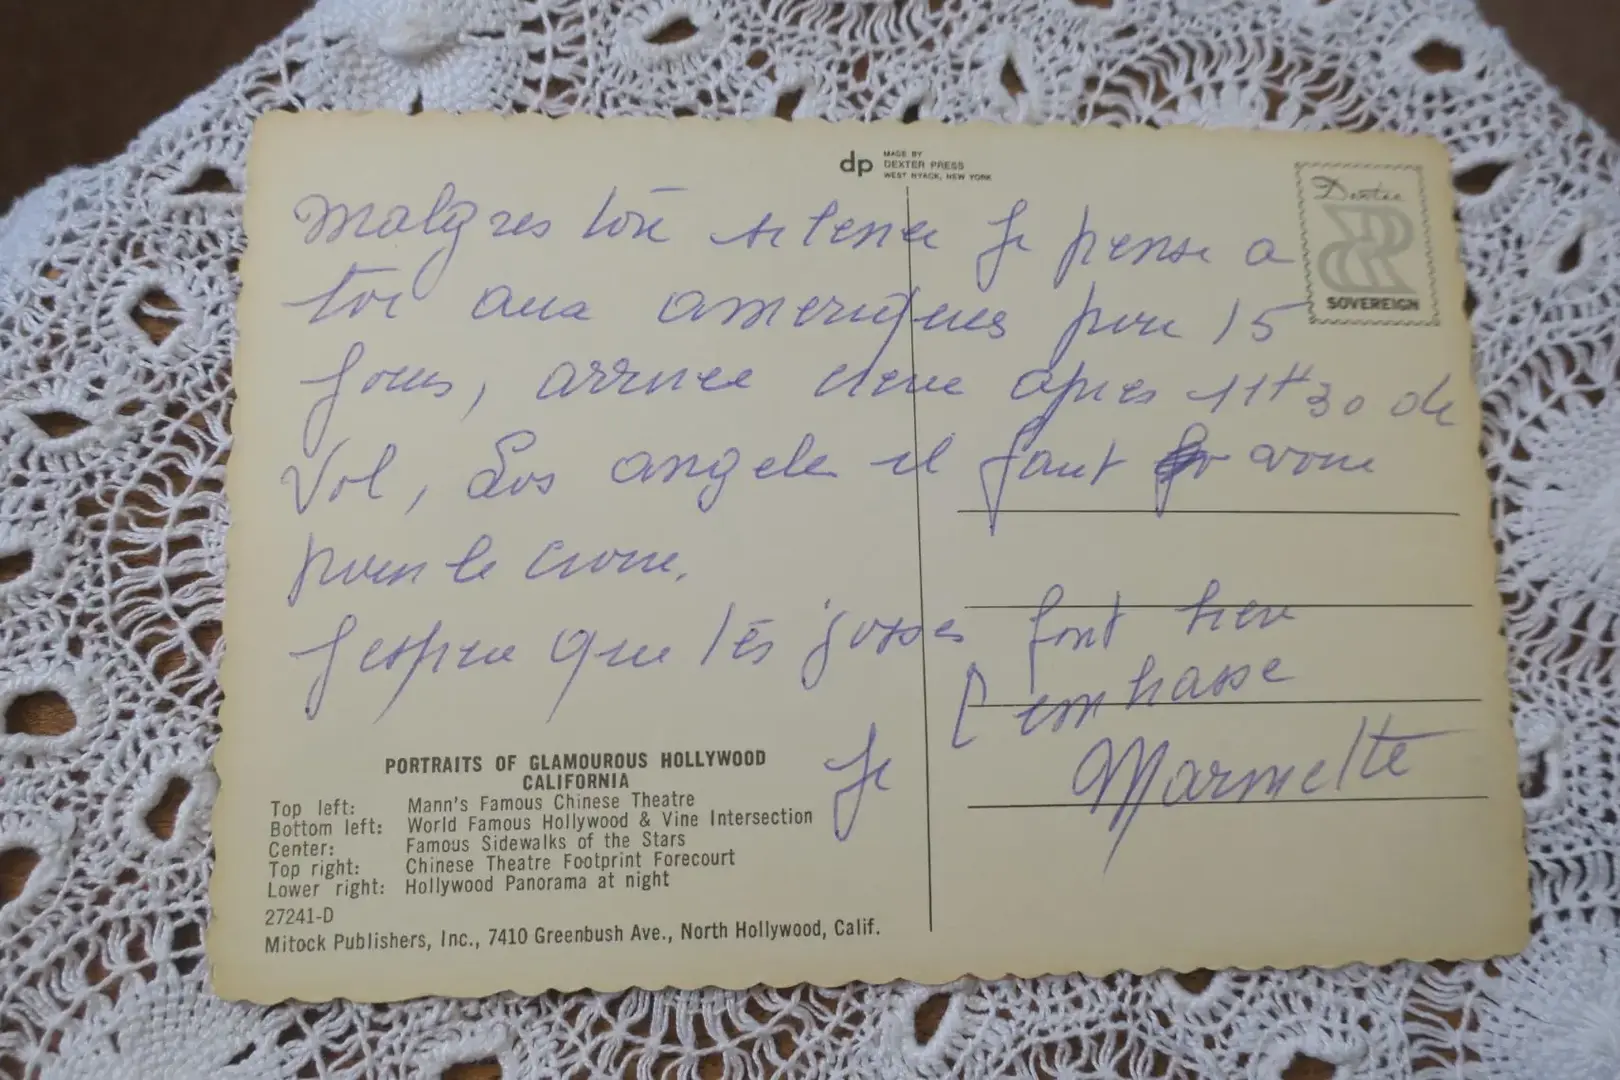 dp MADE BY
DEXTER PRESS
WEST NYACK, NEW YORK
Dexter
SOVEREIGN
Malgres ton silence Je pense a
toi aux ameriques pour 15
Jours, arrivee hier apres 11H30 de
Vol, Los angeles il faut avoir
pour le croire.
J'espere que les gosses font bien
Je t'embrasse
PORTRAITS OF GLAMOUROUS HOLLYWOOD
CALIFORNIA
Top left: Mann's Famous Chinese Theatre
Bottom left: World Famous Hollywood & Vine Intersection
Center: Famous Sidewalks of the Stars
Top right: Chinese Theatre Footprint Forecourt
Lower right: Hollywood Panorama at night
27241-D
Mitock Publishers, Inc., 7410 Greenbush Ave., North Hollywood, Calif.